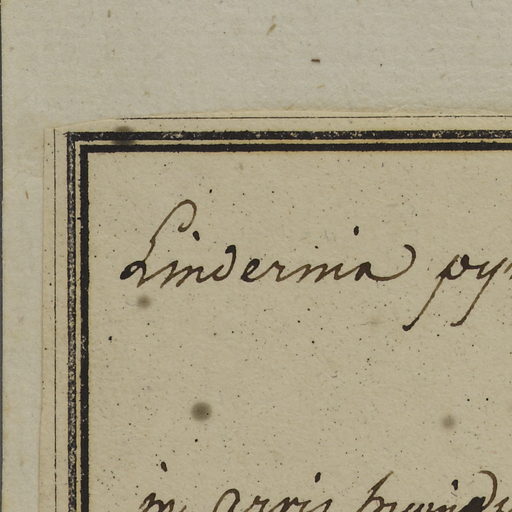 Lindernia py
in arvis humidi